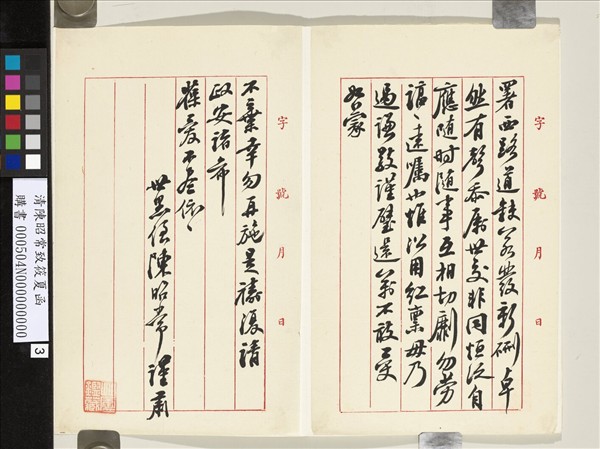 字 號 月 日
署西路道 發新硎卓
然有聲忝屬世交非同恒泛自
應隨時隨事互相切劘勿勞
諄、遠囑也惟以用紅稟毋乃
過謙敬謹璧還萬不敢受
如蒙
字 號 月 日
不棄幸勿再施是禱復請
政安諸希
葆愛不盡依、
世愚侄陳昭常謹肅
清陳昭常致筱夏函
購書 000504N000000000
3